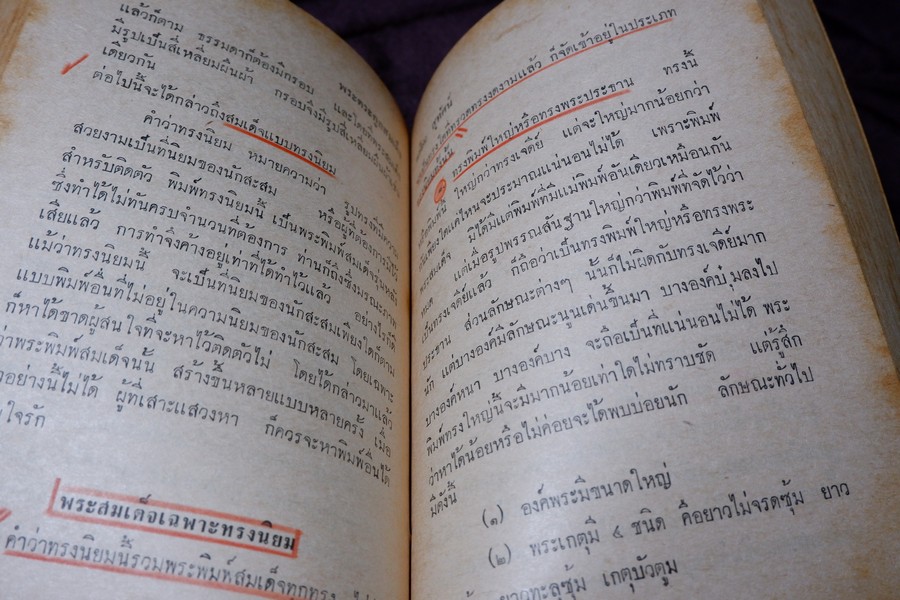 แล้วก็ตาม ธรรมดาก็ต้องมีกรอบ และโดย
มีรูปเป็นสี่เหลี่ยมผืนผ้า กรอบจึงมีรูปสี่เหลี่ยมผืนผ้า
เดียวกัน
ต่อไปนี้จะได้กล่าวถึงสมเด็จแบบทรงนิยม
คำว่าทรงนิยม หมายความว่า รูปทรงพิมพ์
สวยงามเป็นที่นิยมของนักสะสม หรือผู้ที่ต้องการมีไว้
สำหรับติดตัว พิมพ์ทรงนิยมนี้ เป็นพระพิมพ์สมเด็จรุ่นหลัง
ซึ่งทำได้ไม่ทันครบจำนวนที่ต้องการ ท่านก็ถึงซึ่งมรณะภาพ
เสียแล้ว การทำจึงค้างอยู่เท่าที่ได้ทำไว้แล้ว อย่างไรก็ดี
แม้ว่าทรงนิยมนี้ จะเป็นที่นิยมของนักสะสมเพียงใดก็ตาม
แบบพิมพ์อื่นที่ไม่อยู่ในความนิยมของนักสะสม โดยเฉพาะ
ก็หาได้ขาดผู้สนใจที่จะหาไว้ติดตัวไม่ โดยได้กล่าวมาแล้ว
ว่าพระพิมพ์สมเด็จนั้น สร้างขึ้นหลายแบบหลายครั้ง เมื่อ
อย่างนี้ไม่ได้ ผู้ที่เสาะแสวงหา ก็ควรจะหาพิมพ์อื่นได้
ใจรัก
พระสมเด็จเฉพาะทรงนิยม
คำว่าทรงนิยมนี้รวมพระพิมพ์สมเด็จทุกทรง
ทรวดทรงงดงามแล้ว ก็จัดเข้าอยู่ในประเภท
ทรงพิมพ์ใหญ่หรือทรงพระประธาน ทรงนี้
ใหญ่กว่าทรงเจดีย์ แต่จะใหญ่มากน้อยกว่า
เพียงใดแค่ไหนจะประมาณแน่นอนไม่ได้ เพราะพิมพ์
พระสมเด็จ มิได้มีแต่พิมพ์ที่มีแม่พิมพ์อันเดียวเหมือนกัน
หมด แต่เมื่อรูปพรรณสัณฐานใหญ่กว่าพิมพ์ที่จัดไว้ว่า
เป็นทรงเจดีย์แล้ว ก็ถือว่าเป็นทรงพิมพ์ใหญ่หรือทรงพระ
ประธาน ส่วนลักษณะต่างๆ นั้นก็ไม่ผิดกับทรงเจดีย์มาก
นัก แต่บางองค์มีลักษณะนูนเด่นขึ้นมา บางองค์บุ๋มลงไป
บางองค์หนา บางองค์บาง จะถือเป็นที่แน่นอนไม่ได้ พระ
พิมพ์ทรงใหญ่นี้จะมีมากน้อยเท่าใดไม่ทราบชัด แต่รู้สึก
ว่าหาได้น้อยหรือไม่ค่อยจะได้พบบ่อยนัก ลักษณะทั่วไป
มีดังนี้
(๑) องค์พระมีขนาดใหญ่
(๒) พระเกตุมี ๔ ชนิด คือยาวไม่จรดซุ้ม ยาว
ยาวทะลุซุ้ม เกตุบัวตูม